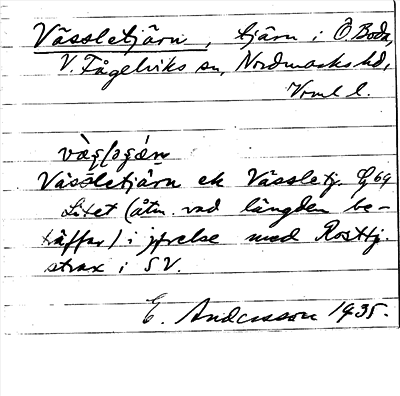 Vässletjärn, tjärn i Ö Boda,
V. Fågelviks sn, Nordmarks hd,
Vrml l.
Vässletjärn ek Vässletj.
Litet (åtm. vad längden be-
träffar) i jfrelse med Rosttj.
strax i SV.
E. Andersson 1935.